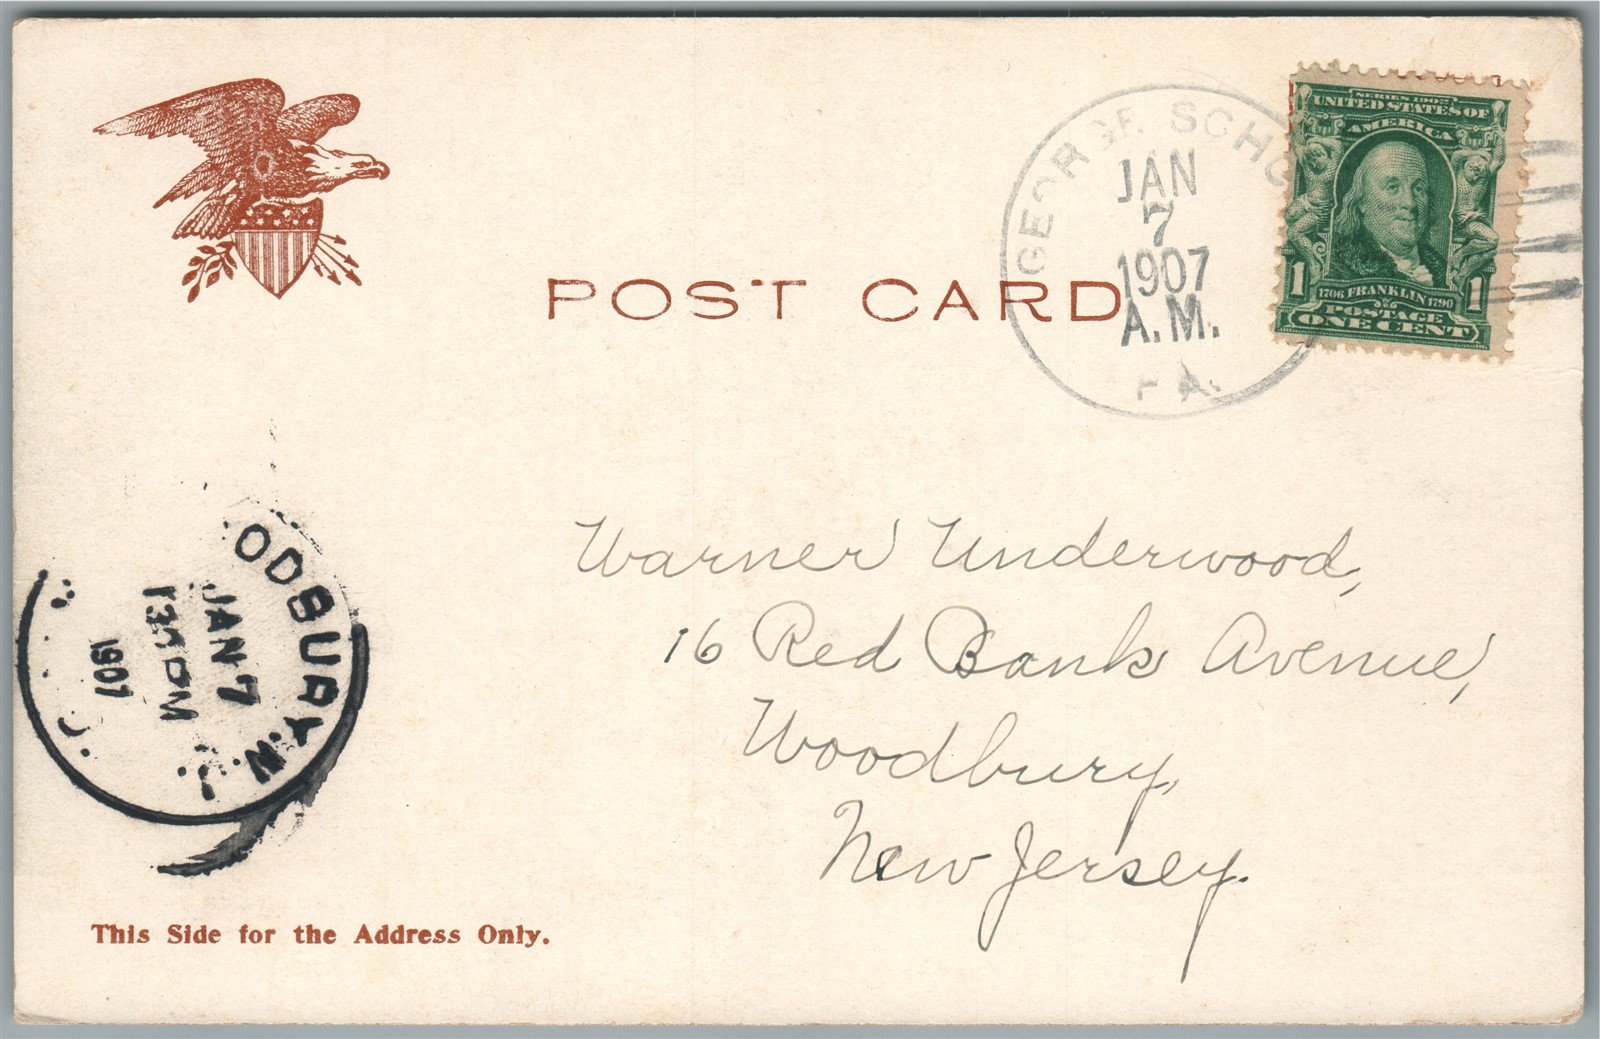 SERIES 1902
UNITED STATES OF
AMERICA
1 1706 FRANKLIN 1790 1
POSTAGE
ONE CENT
GEORGE SCHO
JAN
7
1907
A.M.
PA.
POST CARD
ODBURY. N. J.
JAN 7
1907
Warner Underwood,
16 Red Bank Avenue,
Woodbury,
New Jersey.
This Side for the Address Only.